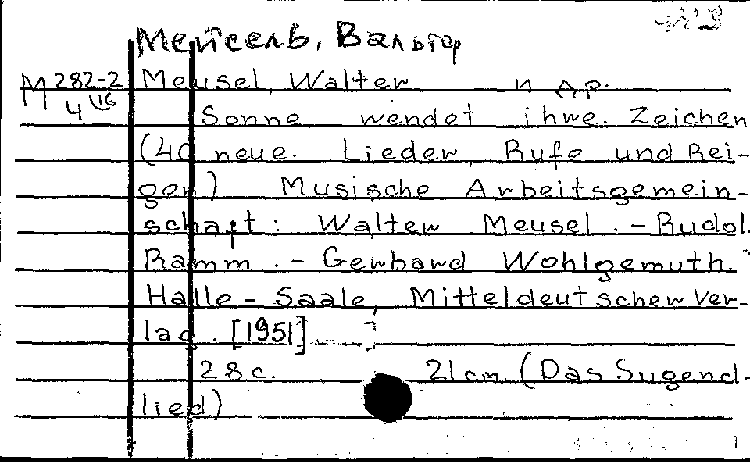 Мейсель, Вальтер
М 282-2 Meusel, Walter и др.
4 Sonne wendet ihre Zeichen
(40 neue Lieder, Rufe und Rei-
gen) Musische Arbeitsgemein-
schaft: Walter Meusel. - Rudol.
Ramm. - Gerhard Wohlgemuth.
Halle-Saale, Mitteldeutscher Ver-
lag. [1951]
28 с. 21 cm (Das Jugend-
lied)